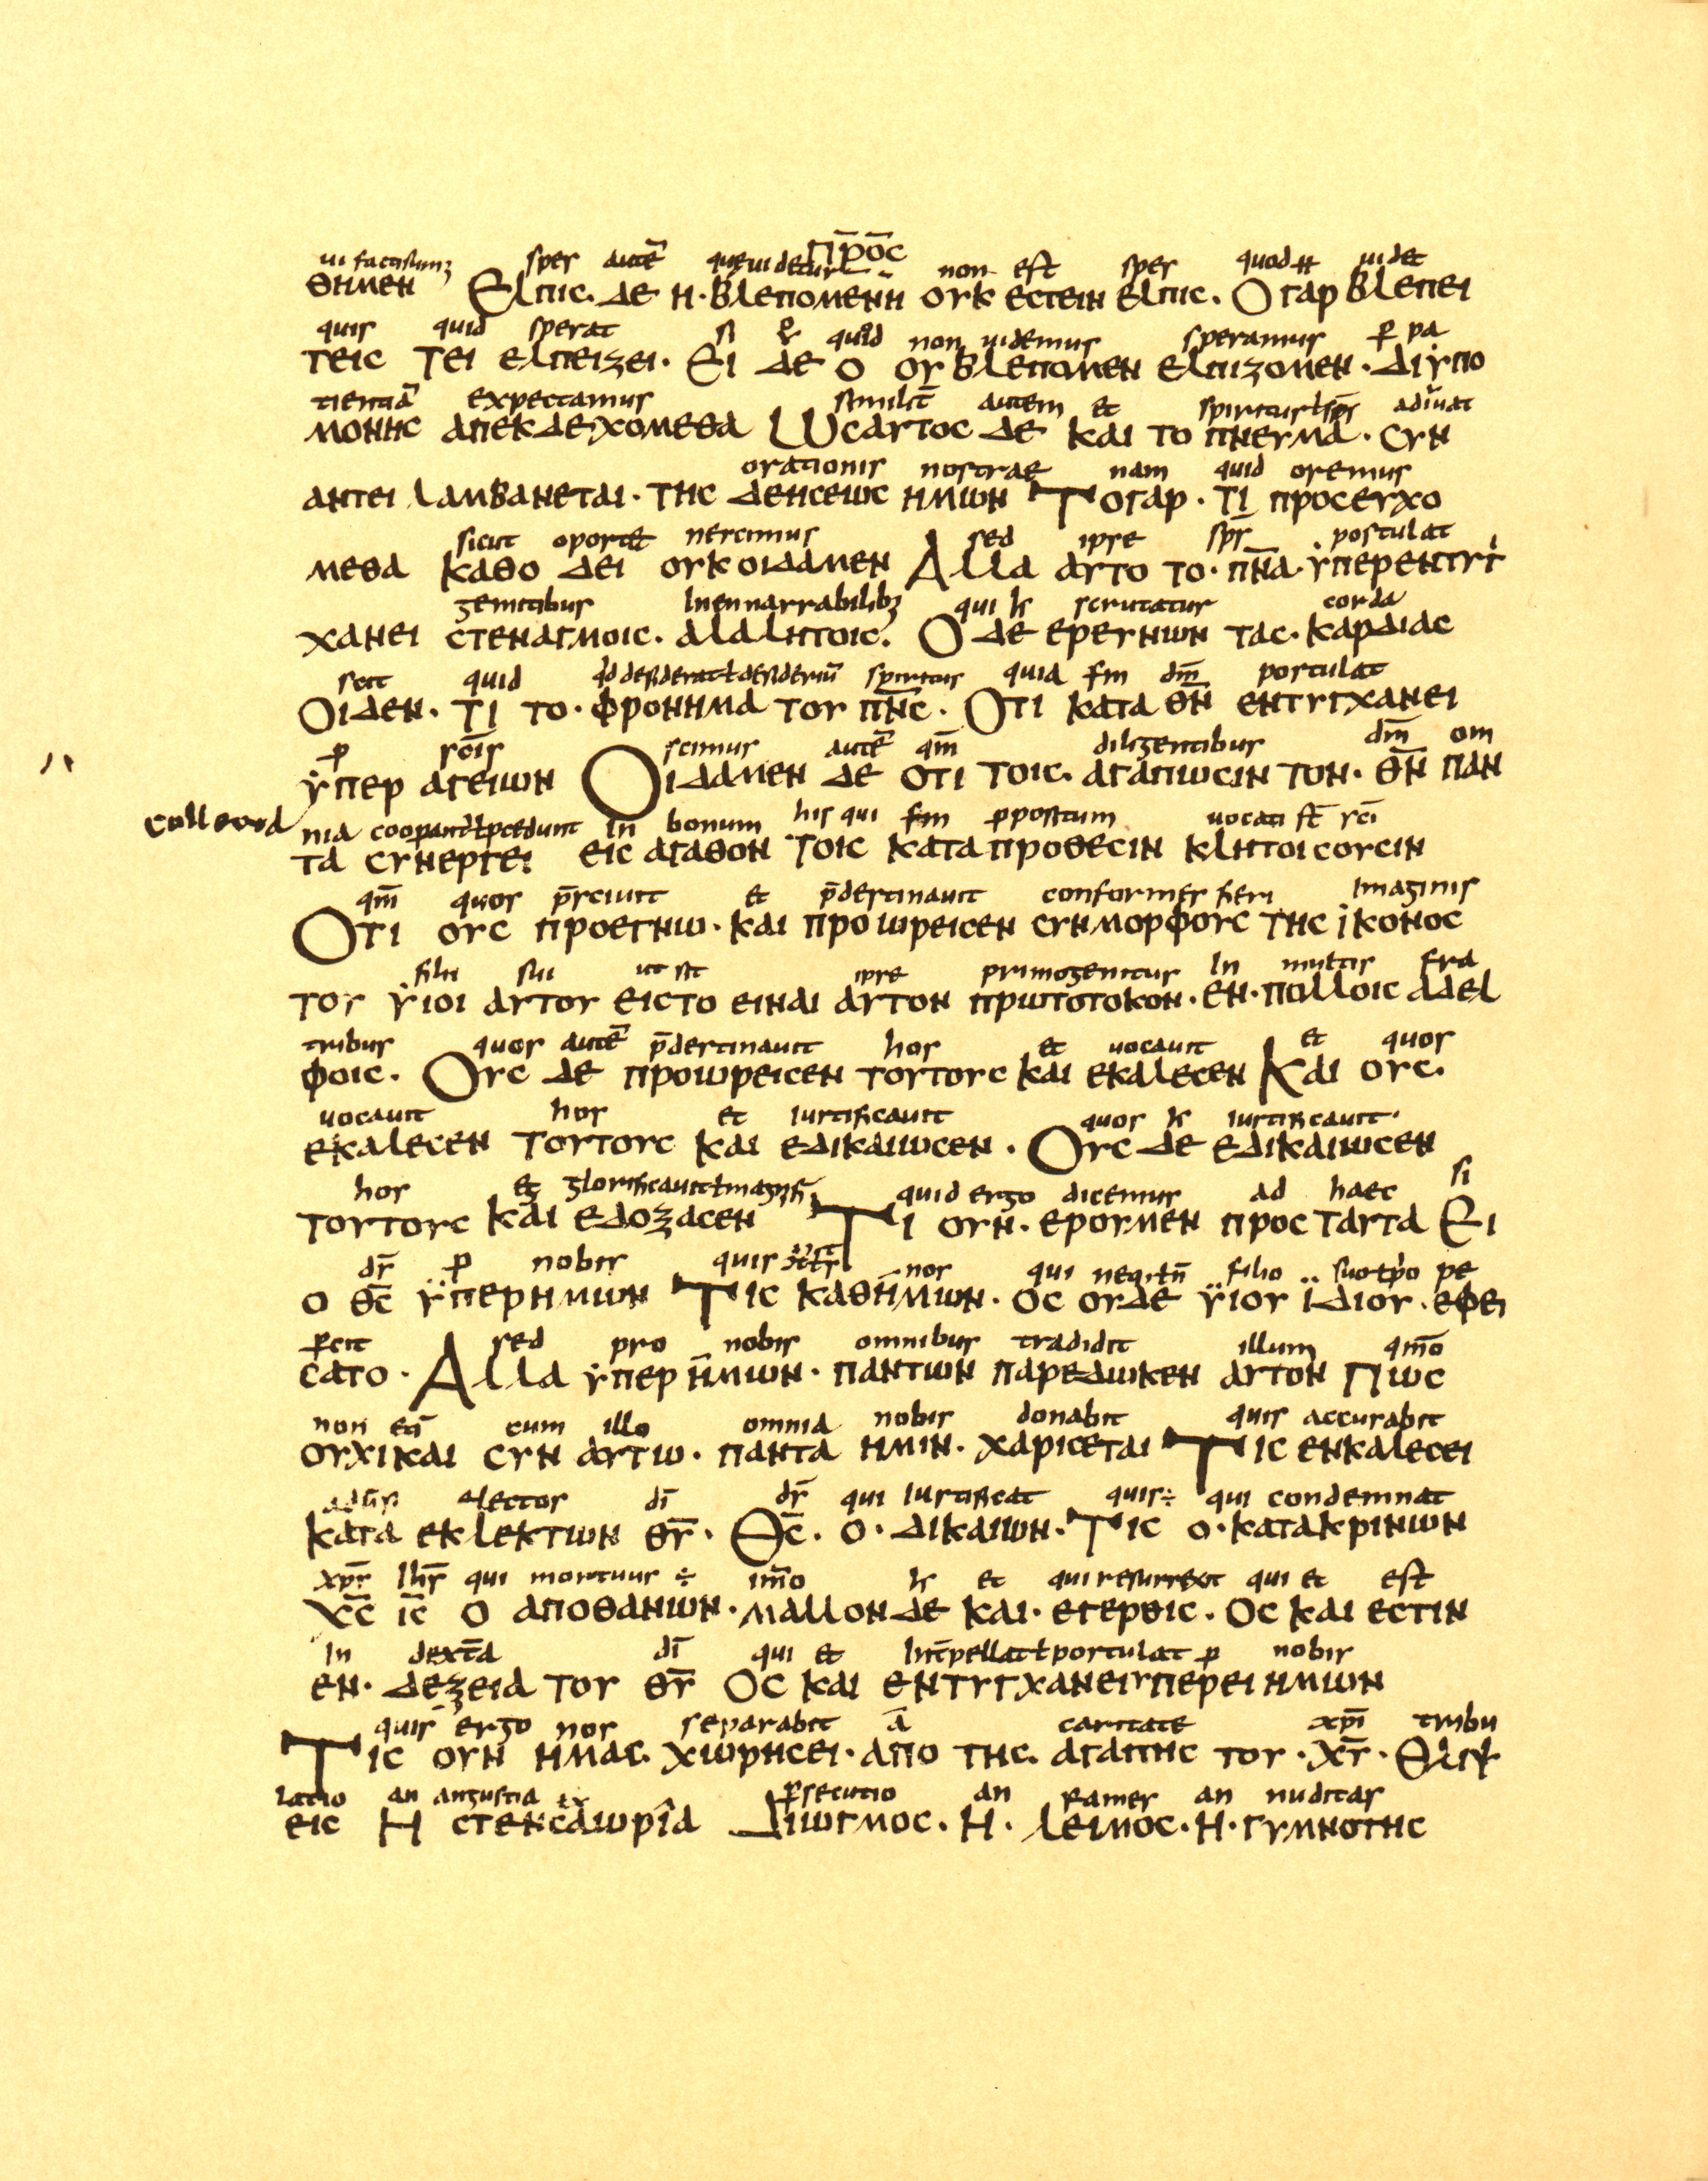 ΠΡΟC
ui facti sumꝫ spes autē que uidetur non est spes quod uidet
ΘΗΜΕΝ ΕΛΠΙC· ΔΕ Η· ΒΛΕΠΟΜΕΝΗ ΟΥΚ ΕCΤΕΙΝ ΕΛΠΙC· Ο ΓΑΡ ΒΛΕΠΕΙ
quis quid sperat si quod non uidemus speramus ꝑ pa
ΤΕΙC ΤΕΙ ΕΛΠΕΙΖΕΙ· ΕΙ ΔΕ Ο ΟΥ ΒΛΕΠΟΜΕΝ ΕΛΠΙΖΟΜΕΝ· ΔΙ ΥΠΟ
tientiā expectamus similit̄ autem et spiritus ł sp̄s adiuuat
ΜΟΝΗC ΑΠΕΚΔΕΧΟΜΕΘΑ ΩCΑΥΤΟC ΔΕ ΚΑΙ ΤΟ ΠΝΕΥΜΑ· CΥΝ
orationis nostrae nam quid oremus
ΑΝΤΕΙΛΑΜΒΑΝΕΤΑΙ· ΤΗC ΔΕΗCΕΩC ΗΜΩΝ ΤΟ ΓΑΡ· ΤΙ ΠΡΟCΕΥΧΟ
sicut oportet nescimus sed ipse sp̄s postulat
ΜΕΘΑ ΚΑΘΟ ΔΕΙ ΟΥΚ ΟΙΔΑΜΕΝ ΑΛΛΑ ΑΥΤΟ ΤΟ· ΠΝ̄Α· ΥΠΕΡΕΝΤΥΓ
gemitibus Inennarrabilibꝫ qui scrutatur corda
ΧΑΝΕΙ CΤΕΝΑΓΜΟΙC· ΑΛΑΛΗΤΟΙC· Ο ΔΕ ΕΡΕΥΝΩΝ ΤΑC· ΚΑΡΔΙΑC
scit quid qd desiderat ł desideriū spiritus quia sm dm̄ postulat
ΟΙΔΕΝ· ΤΙ ΤΟ· ΦΡΟΝΗΜΑ ΤΟΥ ΠΝ̄C· ΟΤΙ ΚΑΤΑ ΘΝ̄ ΕΝΤΥΓΧΑΝΕΙ
ꝑ sc̄is scimus autē qm̄ diligentibus dm̄ om
ΥΠΕΡ ΑΓΕΙΩΝ ΟΙΔΑΜΕΝ ΔΕ ΟΤΙ ΤΟΙC· ΑΓΑΠΩCΙΝ ΤΟΝ· ΘΝ̄ ΠΑΝ
nia coopant ł pcedunt In bonum his qui sm ꝓpositum uocati st̄ sc̄i
ΤΑ CΥΝΕΡΓΕΙ ΕΙC ΑΓΑΘΟΝ ΤΟΙC ΚΑΤΑ ΠΡΟΘΕCΙΝ ΚΛΗΤΟΙC ΟΥCΙΝ
qm̄ quos p̄sciuit et p̄destinauit conformes fieri Imaginis
ΟΤΙ ΟΥC ΠΡΟΕΓΝΩ· ΚΑΙ ΠΡΟΩΡΕΙCΕΝ CΥΝΜΟΡΦΟΥC ΤΗC ΙΚΟΝΟC
filii sui ut sit ipse primogenitus In multis fra
ΤΟΥ ΥΙΟΙ ΑΥΤΟΥ ΕΙC ΤΟ ΕΙΝΑΙ ΑΥΤΟΝ ΠΡΩΤΟΤΟΚΟΝ· ΕΝ· ΠΟΛΛΟΙC ΑΔΕΛ
tribus quos autē p̄destinauit hos et uocauit et quos
ΦΟΙC· ΟΥC ΔΕ ΠΡΟΩΡΕΙCΕΝ ΤΟΥΤΟΥC ΚΑΙ ΕΚΑΛΕCΕΝ ΚΑΙ ΟΥC·
uocauit hos et Iustificauit quos Iustificauit
ΕΚΑΛΕCΕΝ ΤΟΥΤΟΥC ΚΑΙ ΕΔΙΚΑΙΩCΕΝ· ΟΥC ΔΕ ΕΔΙΚΑΙΩCΕΝ
hos et glorificauit ł magnifi quid ergo dicemus ad haec si
ΤΟΥΤΟΥC ΚΑΙ ΕΔΟΞΑCΕΝ ΤΙ ΟΥΝ· ΕΡΟΥΜΕΝ ΠΡΟC ΤΑΥΤΑ ΕΙ
ds̄ ꝑ nobis quis nos qui filio suo ł p̱o pe
Ο ΘC̄ ΥΠΕΡ ΗΜΩΝ ΤΙC ΚΑΘ ΗΜΩΝ· ΟC ΟΥΔΕ ΥΙΟΥ ΙΔΙΟΥ· ΕΦΕΙ
ꝑcit sed pro nobis omnibus tradidit illum qm̄o
CΑΤΟ· ΑΛΛΑ ΥΠΕΡ ΗΜΩΝ· ΠΑΝΤΩΝ ΠΑΡΕΔΩΚΕΝ ΑΥΤΟΝ ΠΩC
non cum illo omnia nobis donabit quis accusabit
ΟΥΧΙ ΚΑΙ CΥΝ ΑΥΤΩ· ΠΑΝΤΑ ΗΜΙΝ· ΧΑΡΙCΕΤΑΙ ΤΙC ΕΝΚΑΛΕCΕΙ
electos dī ds̄ qui Iustificat quis ÷ qui condemnat
ΚΑΤΑ ΕΚΛΕΚΤΩΝ ΘῩ· ΘC̄· Ο· ΔΙΚΑΙΩΝ· ΤΙC Ο· ΚΑΤΑΚΡΙΝΩΝ
xp̄s Ihs̄ qui mortuus ÷ im̄o et qui resurrexit qui et est
ΧC̄ ΙC̄ Ο ΑΠΟΘΑΝΩΝ· ΜΑΛΛΟΝ ΔΕ ΚΑΙ· ΕΓΕΡΘΙC· ΟC ΚΑΙ ΕCΤΙΝ
In dext̄a dī qui et Int̄pellat ł postulat ꝑ nobis
ΕΝ· ΔΕΞΕΙΑ ΤΟΥ ΘῩ ΟC ΚΑΙ ΕΝΤΥΓΧΑΝΕΙ ΥΠΕΡΕΙ ΗΜΩΝ
quis ergo nos separabit ā caritate xp̄i tribu
ΤΙC ΟΥΝ ΗΜΑC· ΧΩΡΗCΕΙ· ΑΠΟ ΤΗC· ΑΓΑΠΗC ΤΟΥ· ΧῩ· ΘΛΙΨ
latio an angustia ꝑsecutio an Fames an nuditas
ΕΙC Η CΤΕΝCΑΩΡΙΑ ΔΙΩΓΜΟC· Η· ΛΕΙΜΟC· Η· ΓΥΜΝΟΤΗC